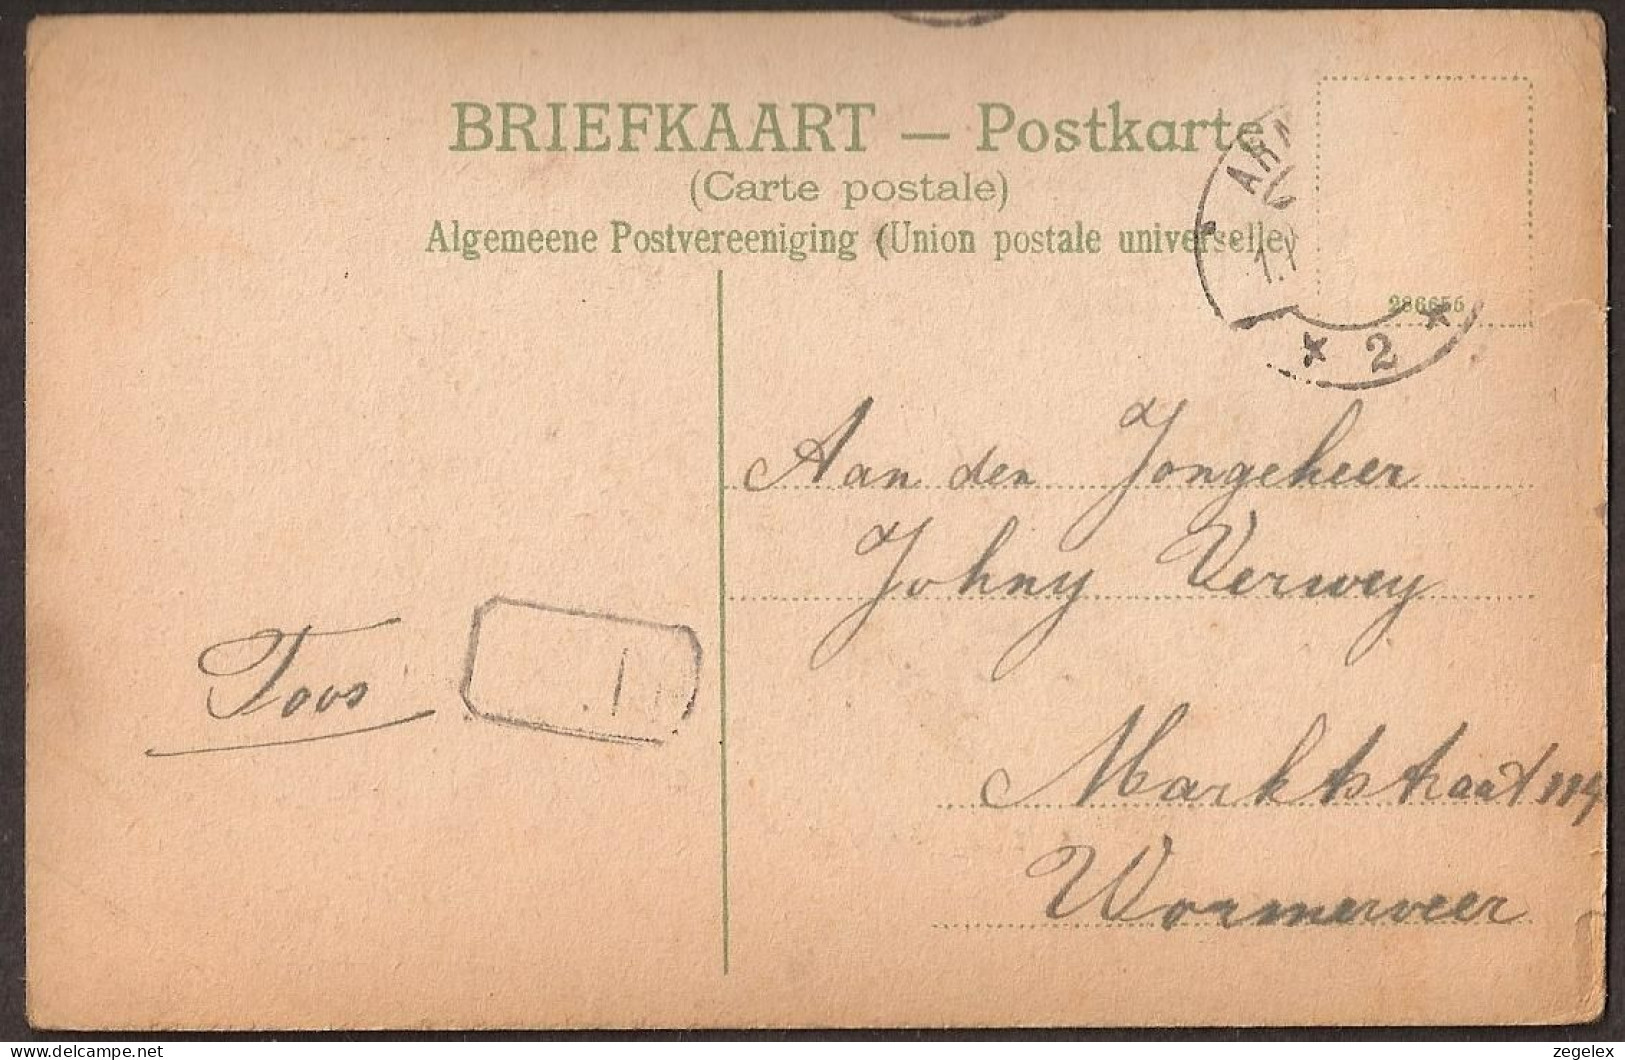 BRIEFKAART — Postkarte
(Carte postale)
Algemeene Postvereeniging (Union postale universelle)
286655
2
Aan den Jongeheer
Johny Verwey
Toos
Marktstraat 114
Wormerveer
delcampe.net
zegelex